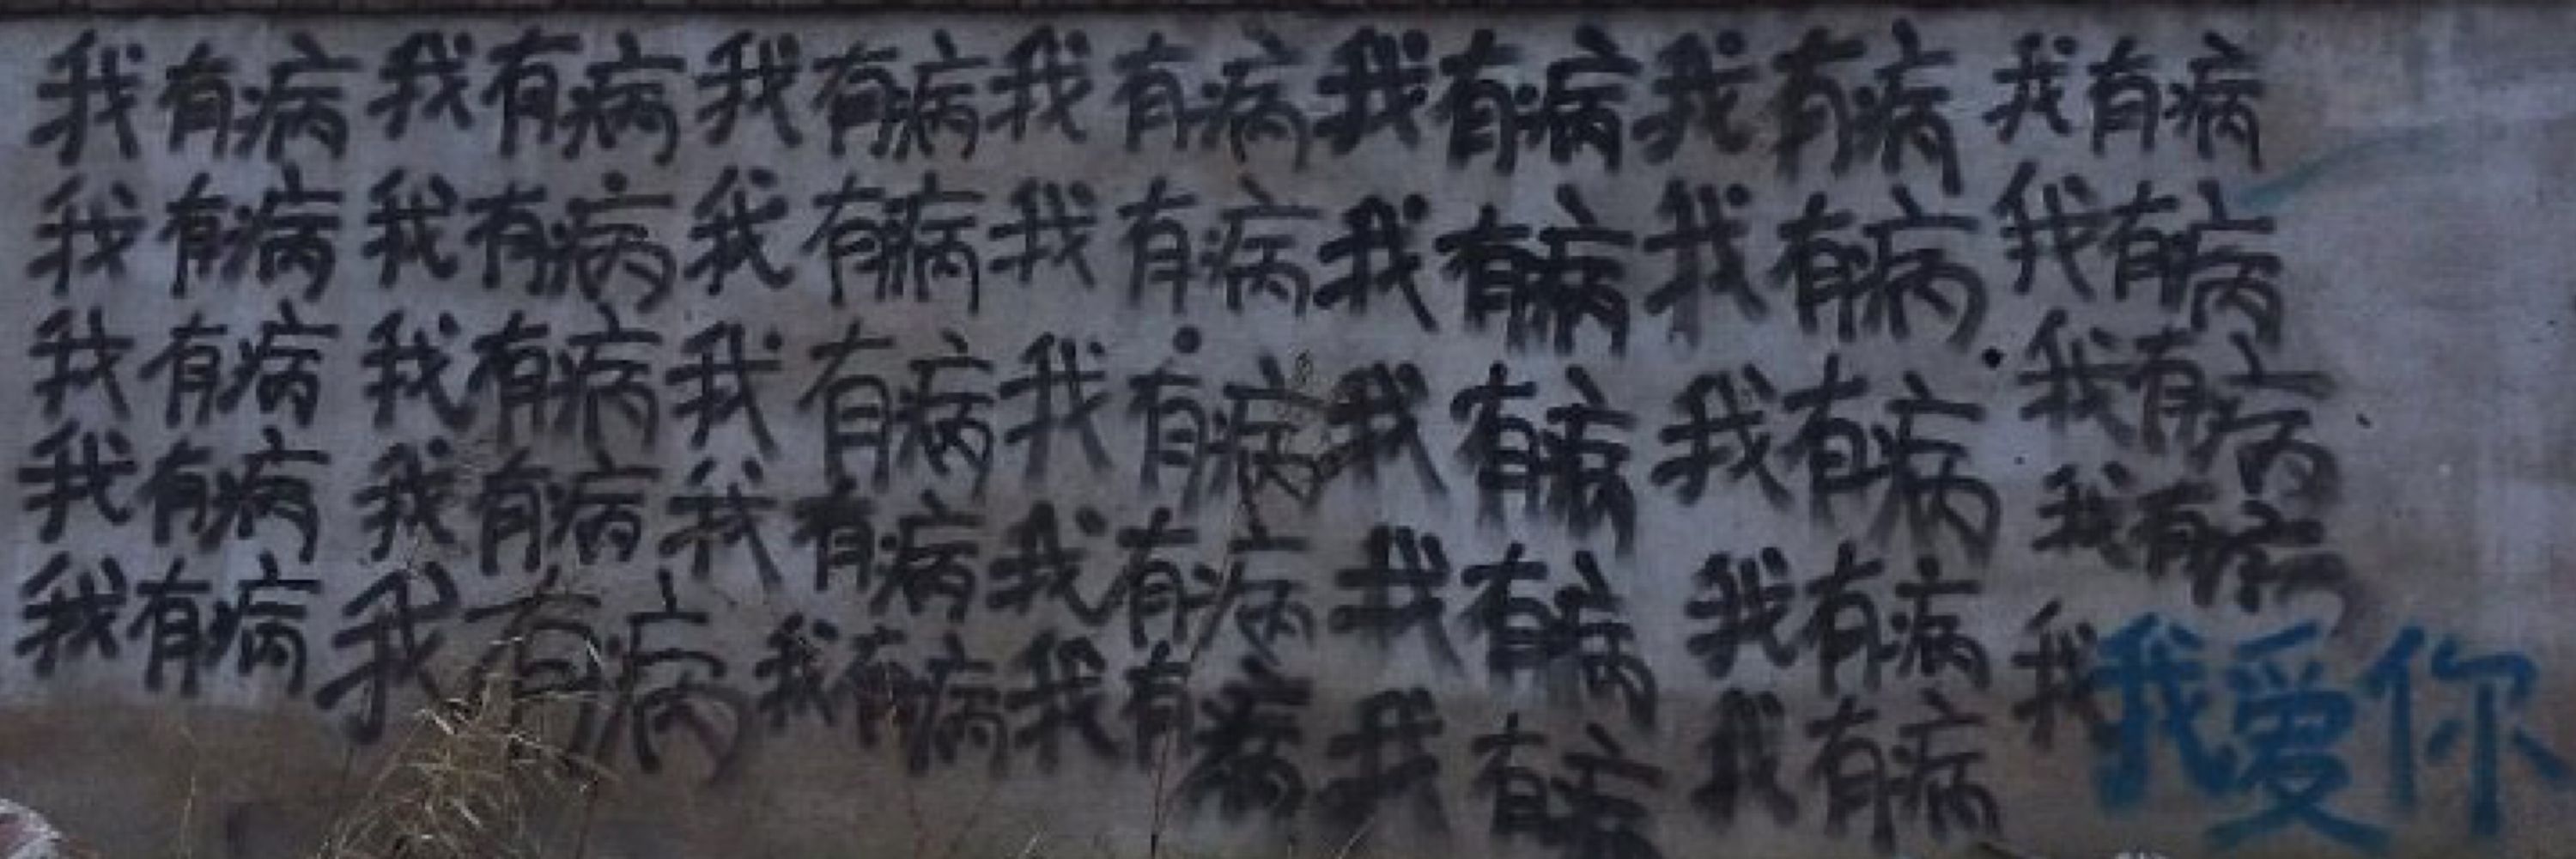 我有病我有病我有病我有病我有病我有病我有病
我有病我有病我有病我有病我有病我有病我有病
我有病我有病我有病我有病我有病我有病我有病
我有病我有病我有病我有病我有病我有病我有病
我有病我有病我有病我有病我有病我有病我
我爱你